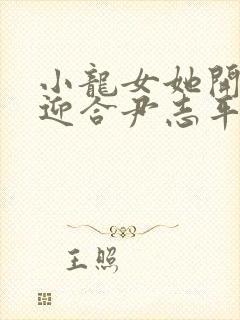 小龍女她開
迎合尹志平
王照